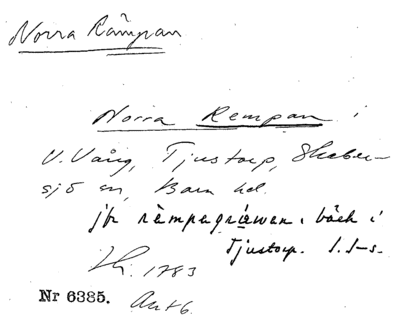 Norra Rämpan
Norra Rempan i
V. Vång, Tjustorp, Skaber-
sjö sn, Bara hd.
jfr rämpagräwen. bäck i
Tjustorp. I.I-s.
1783
Nr 6385. Ant 6.